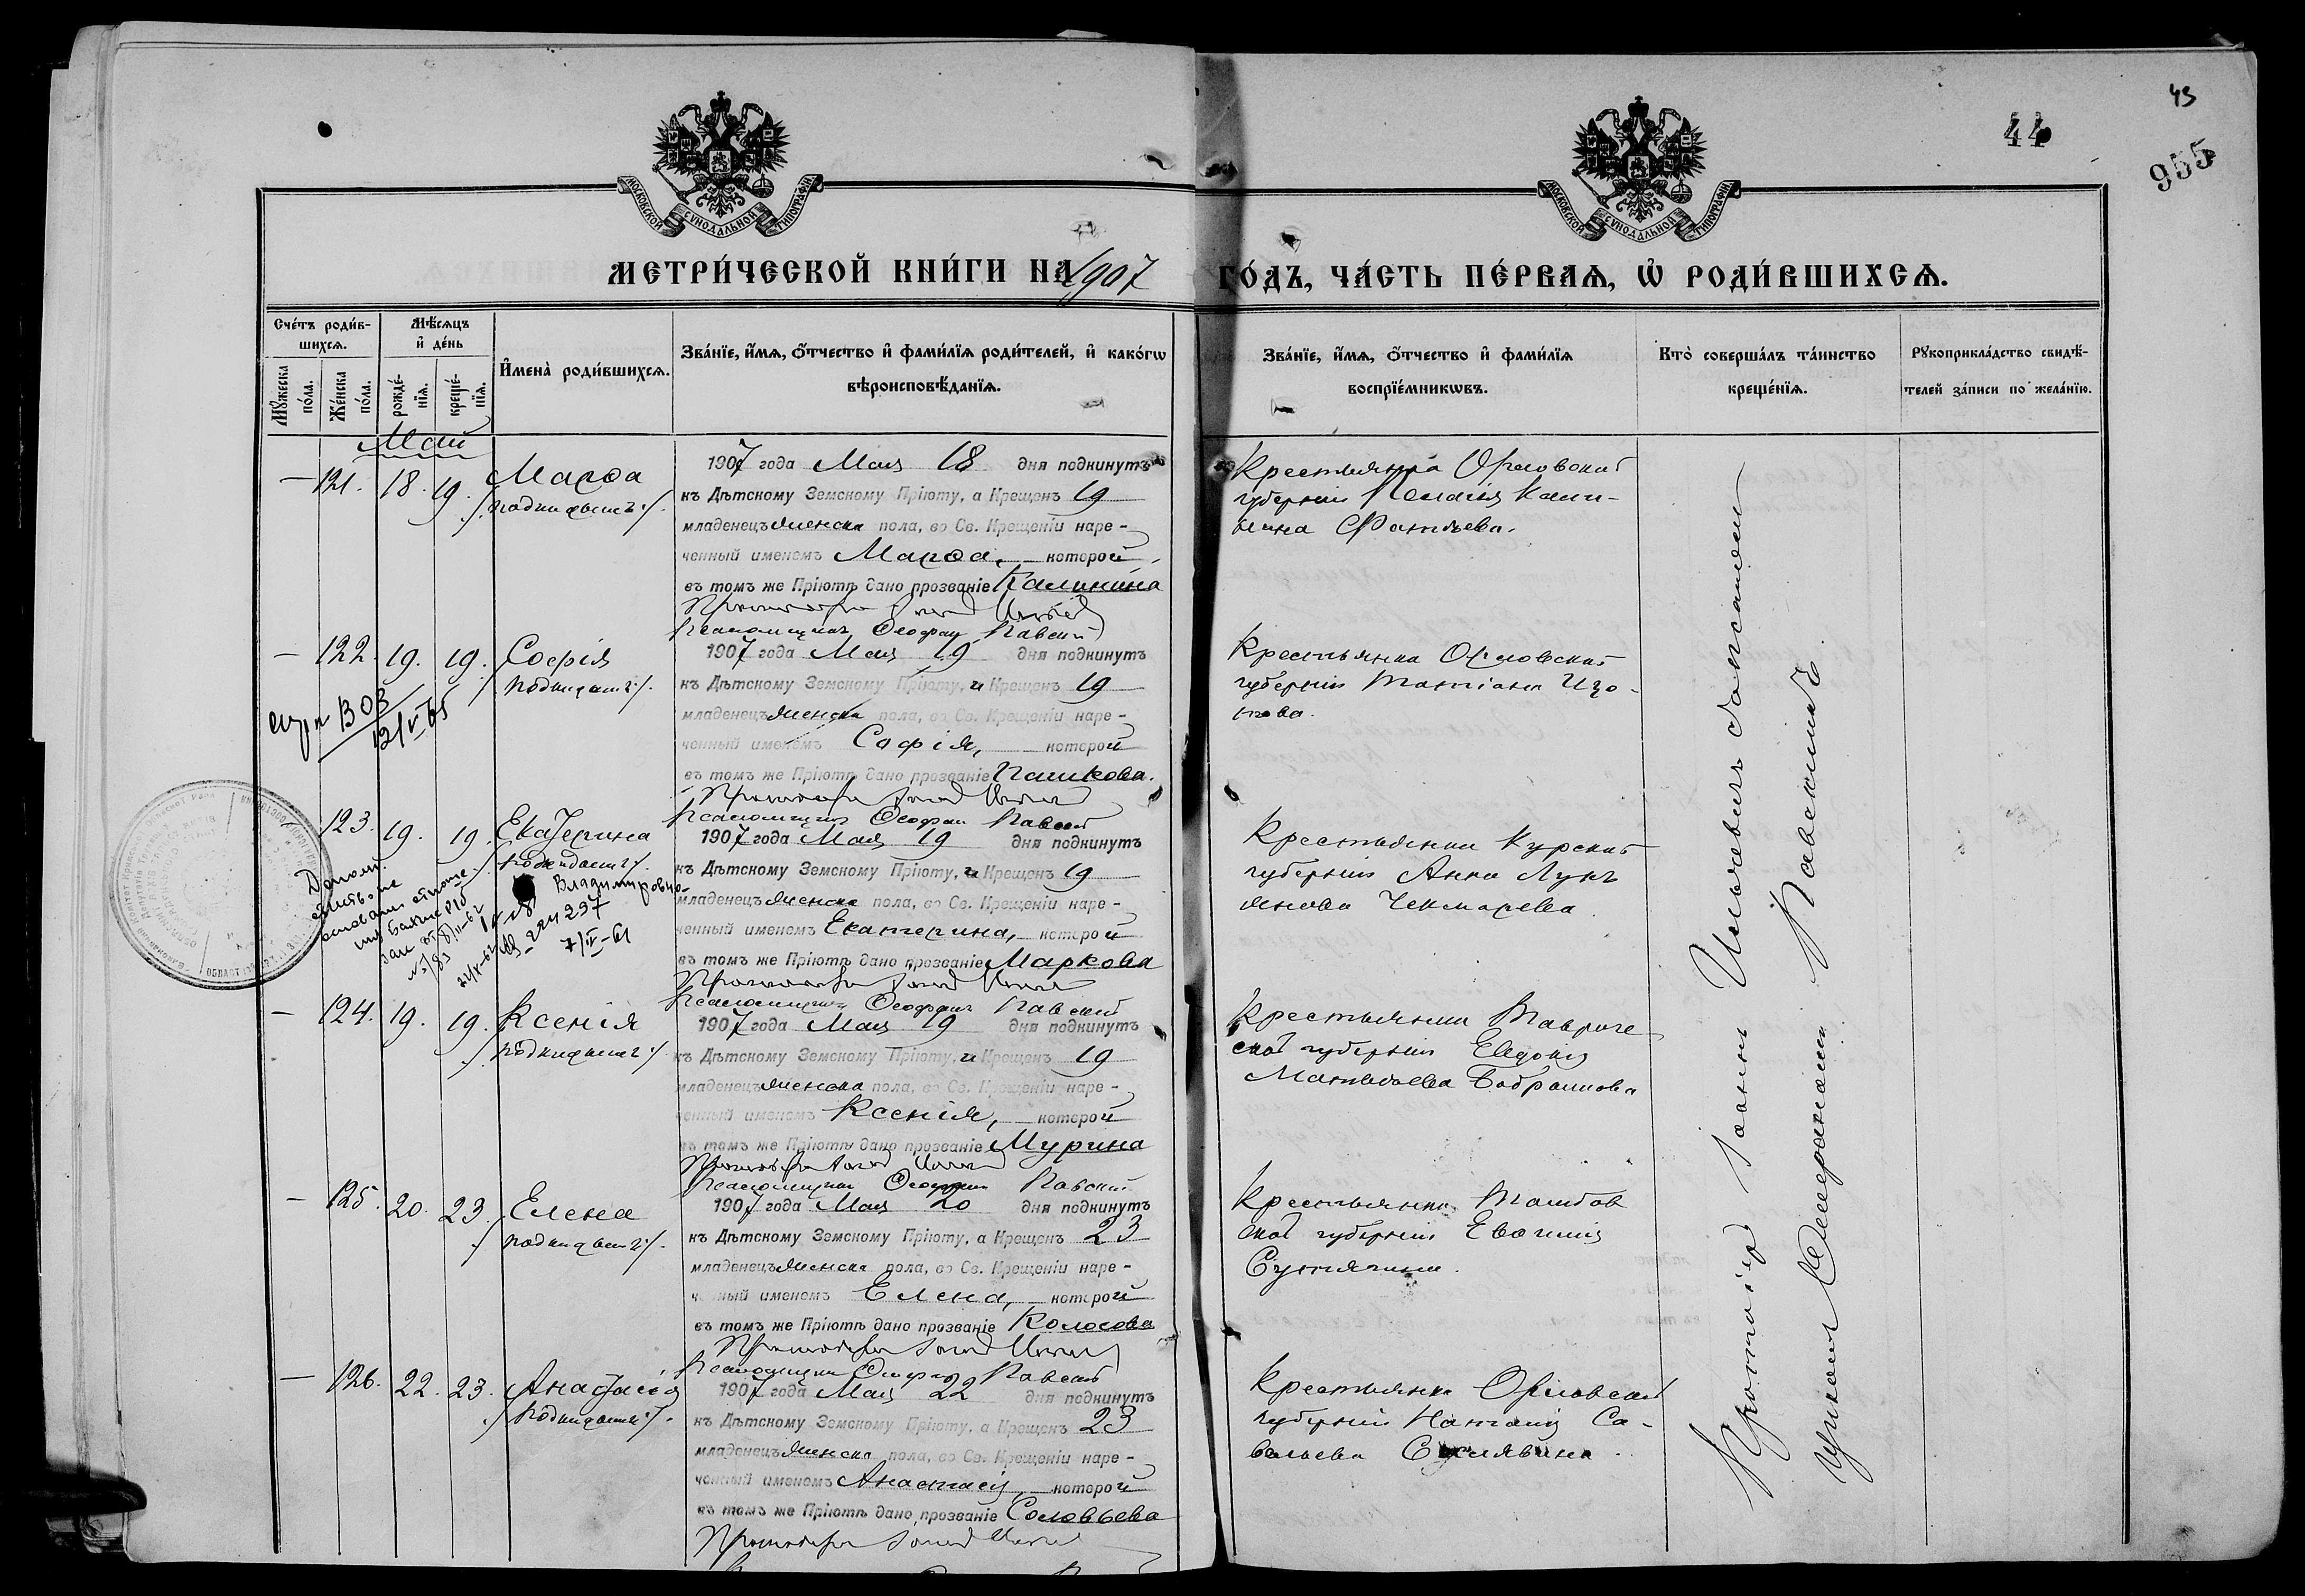 43
44
955
МОСКОВСКОЙ СѴНОДАЛЬНОЙ ТИПОГРАФІИ
МОСКОВСКОЙ СѴНОДАЛЬНОЙ ТИПОГРАФІИ
МЕТРИ́ЧЕСКОЙ КНИ́ГИ НА 1907 ГО́ДЪ, ЧА́СТЬ ПЕ́РВАѦ, Ѡ҆ РОДИ́ВШИХСѦ.
Сче́тъ роди́в-
шихсѧ.
Мꙋ́жеска по́ла.
Же́нска по́ла.
Мѣ́сѧцъ и҆ де́нь
рожде́-
нїѧ.
креще́-
нїѧ.
И҆мена̀ роди́вшихсѧ.
Зва́нїе, и҆́мѧ, ѻ҆́тчество и҆ фами́лїѧ роди́телей, и҆ како́гѡ
вѣроисповѣ́данїѧ.
Зва́нїе, и҆́мѧ, ѻ҆́тчество и҆ фами́лїѧ
воспрїе́мникѡвъ.
Кто̀ соверша́лъ та́инство
креще́нїѧ.
Рꙋкоприкла́дство свидѣ́-
телей за́писи по жела́нїю.
Май
— 121. 18. 19. Марѳа
/подкидышъ/.
1907 года Мая 18 дня подкинутъ
къ Дѣтскому Земскому Пріюту, а Крещенъ 19
младенецъ женска пола, во Св. Крещеніи наре-
ченный именемъ Марѳа, которой
въ томъ же Пріютѣ дано прозваніе Калинина
Псаломщикъ Ѳеофан Павский
Крестьянка Орловской
губерніи Пелагія Кали-
нина Фатѣева.
— 122. 19. 19. Софія
/подкидышъ/.
12/V 65
1907 года Мая 19 дня подкинутъ
къ Дѣтскому Земскому Пріюту, и Крещенъ 19
младенецъ женска пола, во Св. Крещеніи наре-
ченный именемъ Софія, которой
въ томъ же Пріютѣ дано прозваніе Пашкова.
Псаломщикъ Ѳеофан Павский
Крестьянка Орловской
губерніи Татіана Изо-
това.
— 123. 19. 19. Екатерина
/подкидышъ/.
Владимировно-
7/IV-61
1907 года Мая 19 дня подкинутъ
къ Дѣтскому Земскому Пріюту, и Крещенъ 19
младенецъ женска пола, во Св. Крещеніи наре-
ченный именемъ Екатерина, которой
въ томъ же Пріютѣ дано прозваніе Маркова
Псаломщикъ Ѳеофанъ Павский
Крестьянка Курской
губерніи Анна Лукъ
янова Чекмарева.
— 124. 19. 19. Ксенія
/подкидышъ/.
1907 года Мая 19 дня подкинутъ
къ Дѣтскому Земскому Пріюту, и Крещенъ 19
младенецъ женска пола, во Св. Крещеніи наре-
ченный именемъ Ксенія, которой
въ томъ же Пріютѣ дано прозваніе Мурина
Псаломщикъ Ѳеофан Павский
Крестьянка Тавриче
ской губерніи Евдокія
Матвѣева
— 125. 20. 23. Елена
/подкидышъ/.
1907 года Мая 20 дня подкинутъ
къ Дѣтскому Земскому Пріюту, а Крещенъ 23
младенецъ женска пола, во Св. Крещеніи наре-
ченный именемъ Елена, которой
въ томъ же Пріютѣ дано прозваніе Колосова
Псаломщикъ Ѳеофан Павский
Крестьянка Тамбов
ской губерніи
— 126. 22. 23. Анастасія
/подкидышъ/.
1907 года Мая 22 дня подкинутъ
къ Дѣтскому Земскому Пріюту, а Крещенъ 23
младенецъ женска пола, во Св. Крещеніи наре-
ченный именемъ Анастасія, которой
въ томъ же Пріютѣ дано прозваніе Соловьева
Крестьянка Орловской
губерніи Наталія Са-
вельева
Протоіерей Іоаннъ Ильичевъ съ псалом
щикомъ Ѳеофаномъ Павскимъ